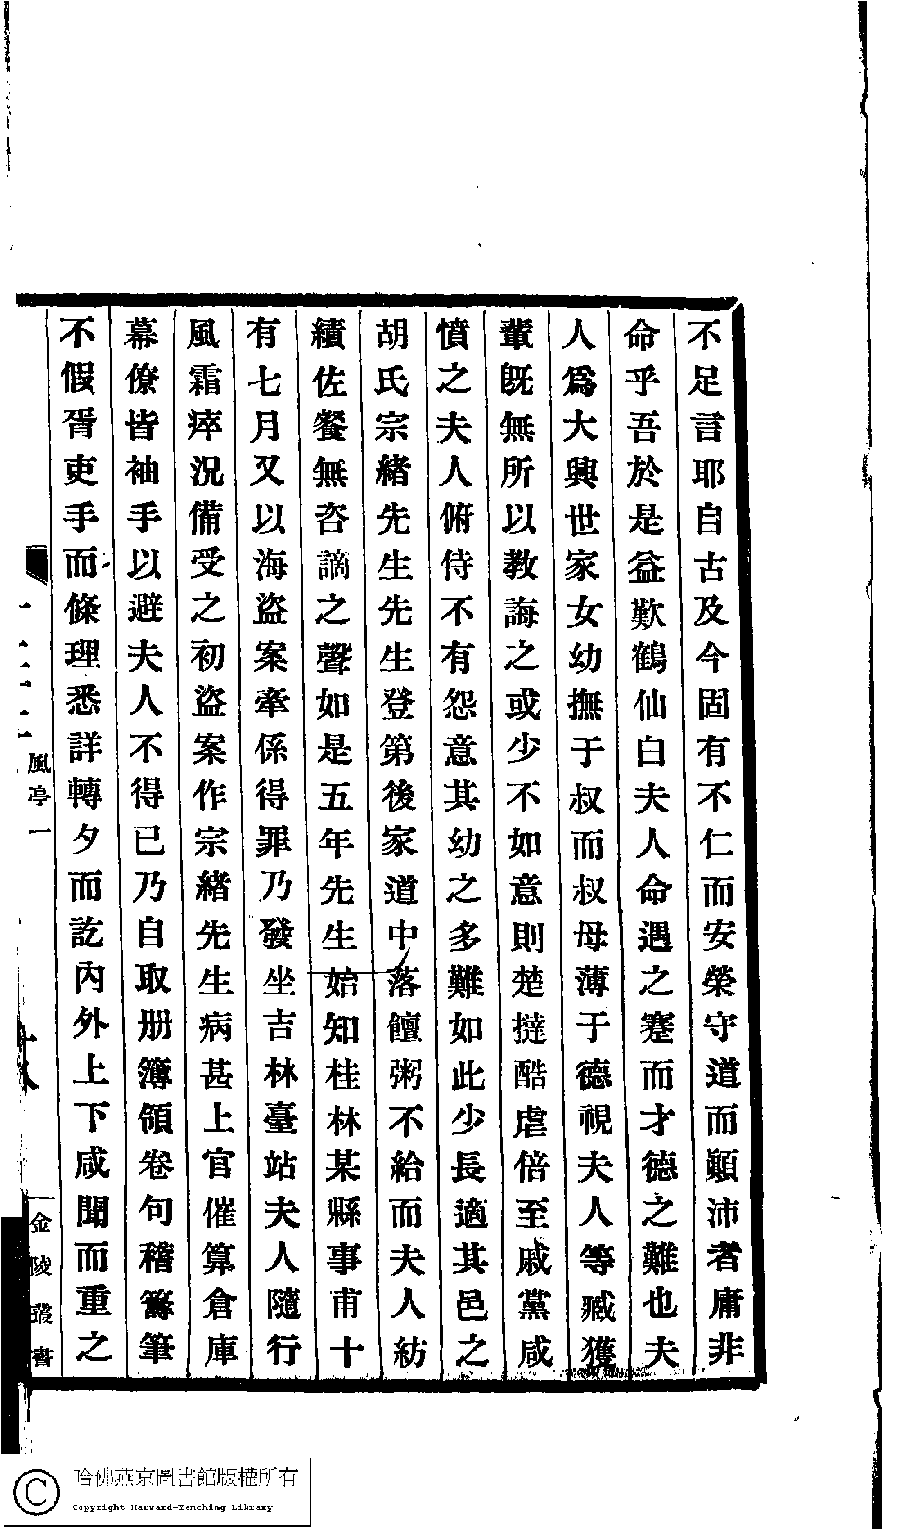 不足言耶自古及今固有不仁而安榮守道而顚沛者庸非
命乎吾於是益歎鶴仙白夫人命遇之蹇而才德之難也夫
人爲大興世家女幼撫于叔而叔母薄于德視夫人等臧獲
輩旣無所以教誨之或少不如意則楚撻酷虐倍至戚黨咸
憤之夫人俯侍不有怨意其幼之多難如此少長適其邑之
胡氏宗緒先生先生登第後家道中落饘粥不給而夫人紡
績佐餐無咨謫之聲如是五年先生始知桂林某縣事甫十
有七月又以海盜案牽係得罪乃發坐吉林臺站夫人隨行
風霜瘁況備受之初盜案作宗緒先生病甚上官催算倉庫
幕僚皆袖手以避夫人不得已乃自取册簿領卷句稽籌筆
不假胥吏手而條理悉詳轉夕而訖內外上下咸聞而重之
風亭一
金陵叢書
哈佛燕京圖書館版權所有
Copyright Harvard-Yenching Library